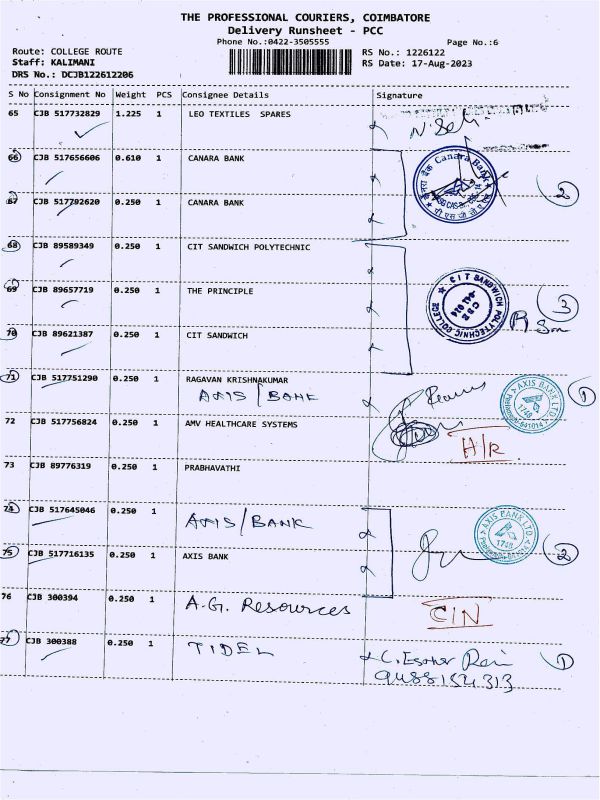 THE PROFESSIONAL COURIERS, COIMBATORE
Delivery Runsheet - PCC
Phone No.:0422-3505555 Page No.:6
Route: COLLEGE ROUTE RS No.: 1226122
Staff: KALIMANI RS Date: 17-Aug-2023
DRS No.: DCJB122612206
S No Consignment No Weight PCS Consignee Details Signature
65 CJB 517732829 1.225 1 LEO TEXTILES SPARES
66 CJB 517656606 0.610 1 CANARA BANK
67 CJB 517792620 0.250 1 CANARA BANK
2
68 CJB 89589349 0.250 1 CIT SANDWICH POLYTECHNIC
69 CJB 89657719 0.250 1 THE PRINCIPLE
CIT SANDWICH POLYTECHNIC COLLEGE
3
70 CJB 89621387 0.250 1 CIT SANDWICH
71 CJB 517751290 0.250 1 RAGAVAN KRISHNAKUMAR
AXIS/BANK
AXIS BANK LTD.
1748
1
72 CJB 517756824 0.250 1 AMV HEALTHCARE SYSTEMS
H/R
73 CJB 89776319 0.250 1 PRABHAVATHI
74 CJB 517645046 0.250 1 AXIS/BANK
75 CJB 517716135 0.250 1 AXIS BANK
AXIS BANK LTD.
1748
2
76 CJB 300394 0.250 1 A.G. Resources C/N
77 CJB 300388 0.250 1 TIDEL
1